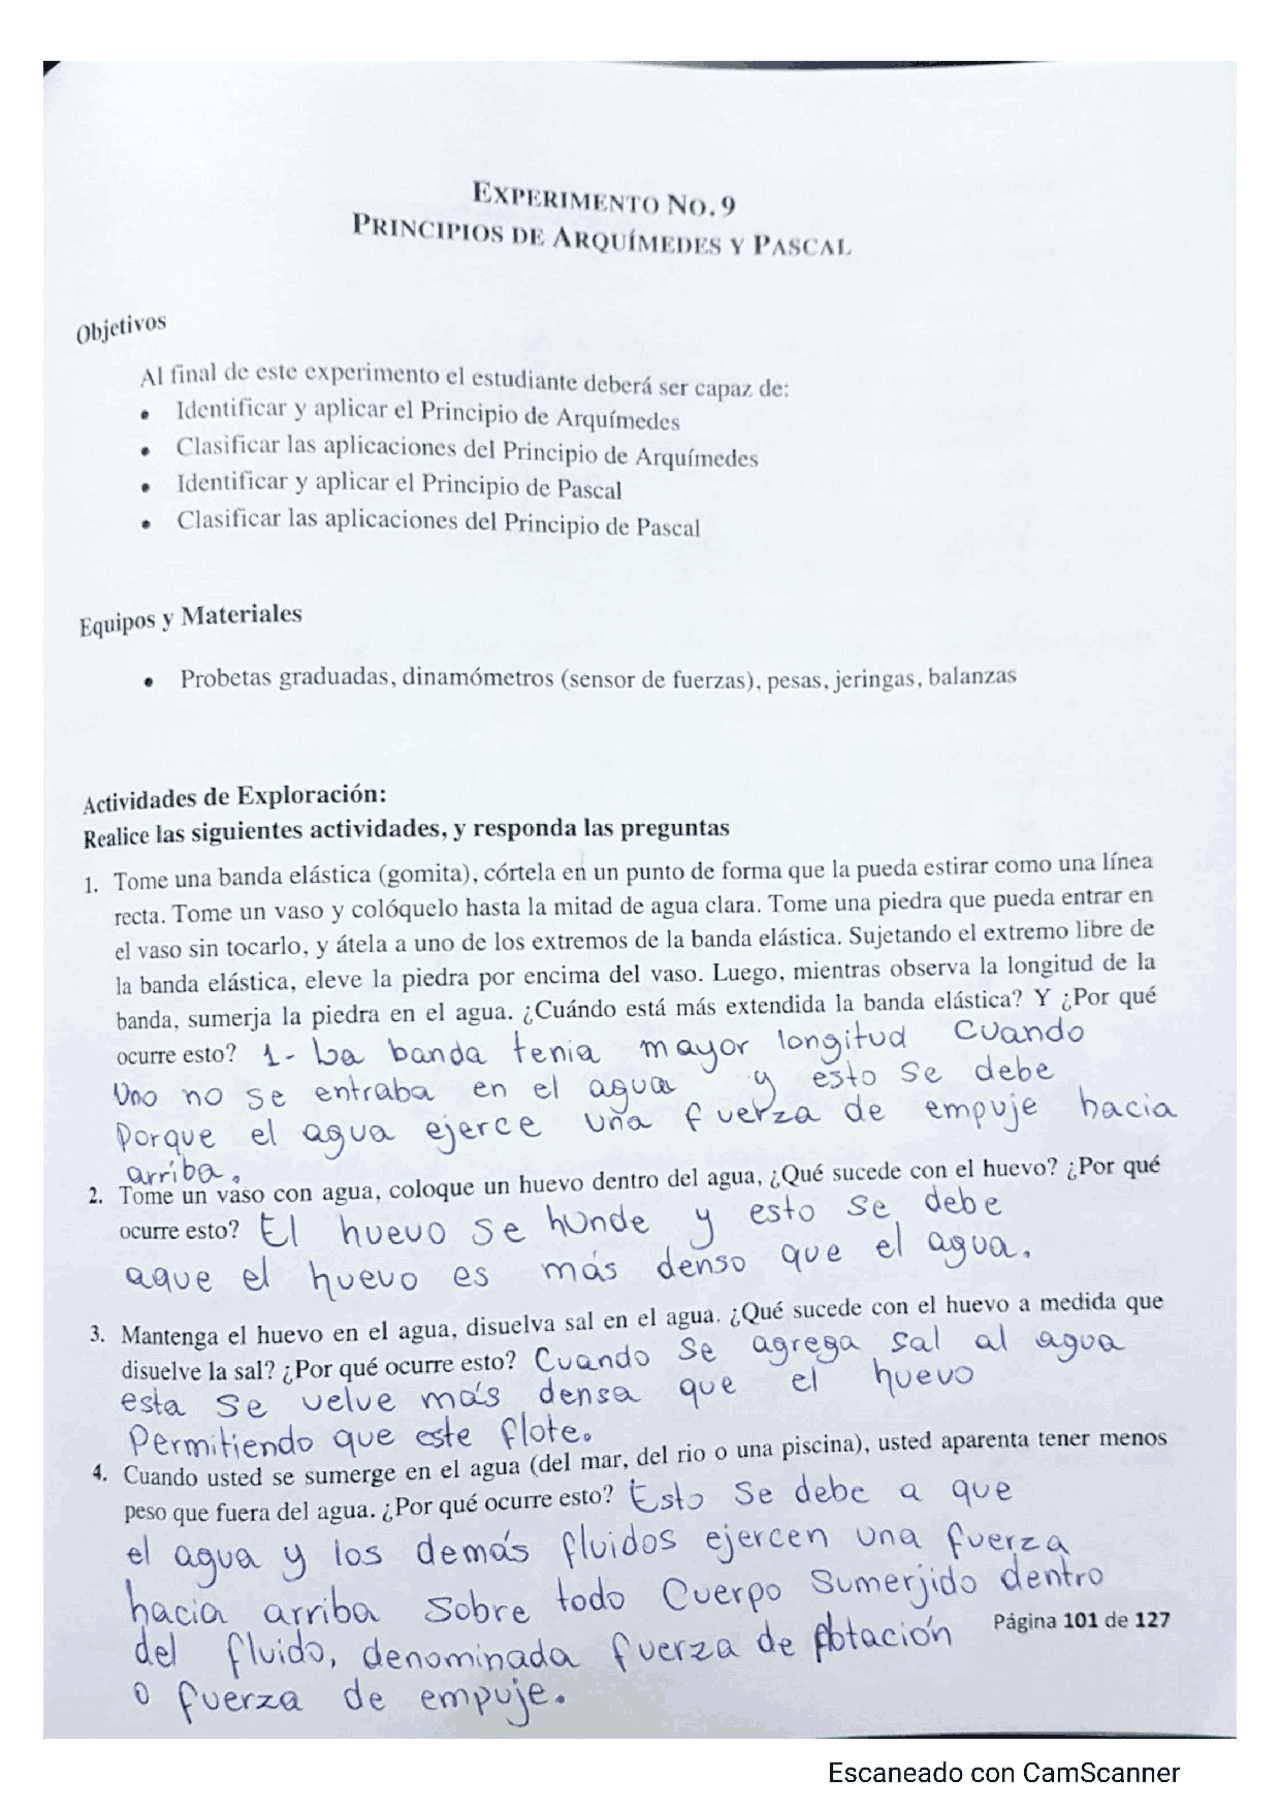 EXPERIMENTO NO. 9
PRINCIPIOS DE ARQUÍMEDES Y PASCAL
Objetivos
Al final de este experimento el estudiante deberá ser capaz de:
• Identificar y aplicar el Principio de Arquímedes
• Clasificar las aplicaciones del Principio de Arquímedes
• Identificar y aplicar el Principio de Pascal
• Clasificar las aplicaciones del Principio de Pascal
Equipos y Materiales
• Probetas graduadas, dinamómetros (sensor de fuerzas), pesas, jeringas, balanzas
Actividades de Exploración:
Realice las siguientes actividades, y responda las preguntas
1. Tome una banda elástica (gomita), córtela en un punto de forma que la pueda estirar como una línea
recta. Tome un vaso y colóquelo hasta la mitad de agua clara. Tome una piedra que pueda entrar en
el vaso sin tocarlo, y átela a uno de los extremos de la banda elástica. Sujetando el extremo libre de
la banda elástica, eleve la piedra por encima del vaso. Luego, mientras observa la longitud de la
banda, sumerja la piedra en el agua. ¿Cuándo está más extendida la banda elástica? Y ¿Por qué
ocurre esto? 1- La banda tenia mayor longitud cuando
Uno no se entraba en el agua y esto se debe
porque el agua ejerce una fuerza de empuje hacia
arriba.
2. Tome un vaso con agua, coloque un huevo dentro del agua, ¿Qué sucede con el huevo? ¿Por qué
ocurre esto? El huevo se hunde y esto se debe
aque el huevo es más denso que el agua.
3. Mantenga el huevo en el agua, disuelva sal en el agua. ¿Qué sucede con el huevo a medida que
disuelve la sal? ¿Por qué ocurre esto? Cuando se agrega sal al agua
esta se vuelve más densa que el huevo
Permitiendo que este flote.
4. Cuando usted se sumerge en el agua (del mar, del rio o una piscina), usted aparenta tener menos
peso que fuera del agua. ¿Por qué ocurre esto? Esto se debe a que
el agua y los demás fluidos ejercen una fuerza
hacia arriba sobre todo cuerpo sumerjido dentro
Página 101 de 127
del fluido, denominada fuerza de flotación
o fuerza de empuje.
Escaneado con CamScanner